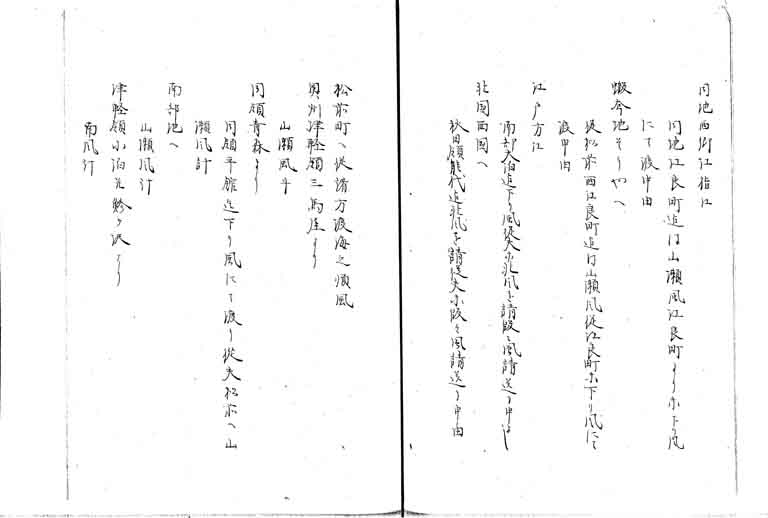 同地西郷江指江
同地江良町迄ハ山瀬風江良町より下り風
にて渡申由
蝦夷地そうやへ
従松前西江良町迄ハ山瀬風従江良町下り風にて
渡申由
江戸方江
南部大泊迄下り風従夫北風を請段々風請送り申由
北国西国へ
秋田領能代迄北風を請従夫段々風請送り申由
松前町へ従諸方渡海之順風
奥州津軽領三馬屋より
山瀬風斗
同領青森より
同領平舘迄下り風にて渡り従夫松前へ山
瀬風計
南部地へ
山瀬風計
津軽領小泊鯵ヶ沢より
南風計